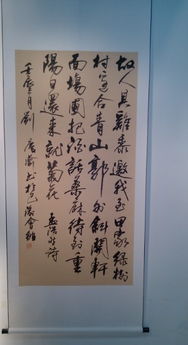 故人具雞黍邀我至田家綠樹
村邊合青山郭外斜開軒
面場圃把酒話桑麻待到重
陽日還來就菊花 孟浩然詩